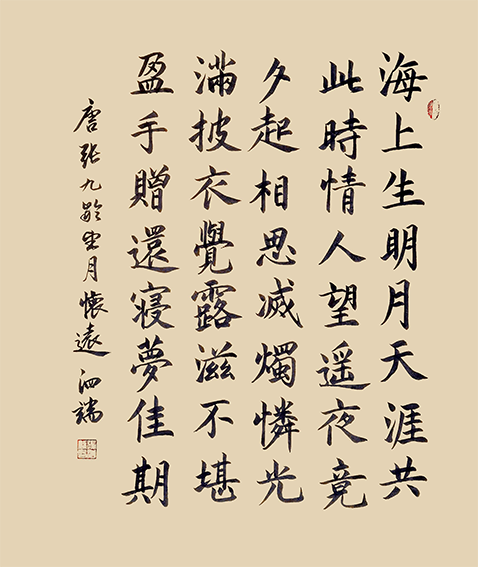 海上生明月天涯共
此時情人望遥夜竟
夕起相思滅燭憐光
滿披衣覺露滋不堪
盈手贈還寢夢佳期
唐張九齡望月懷遠 泗端